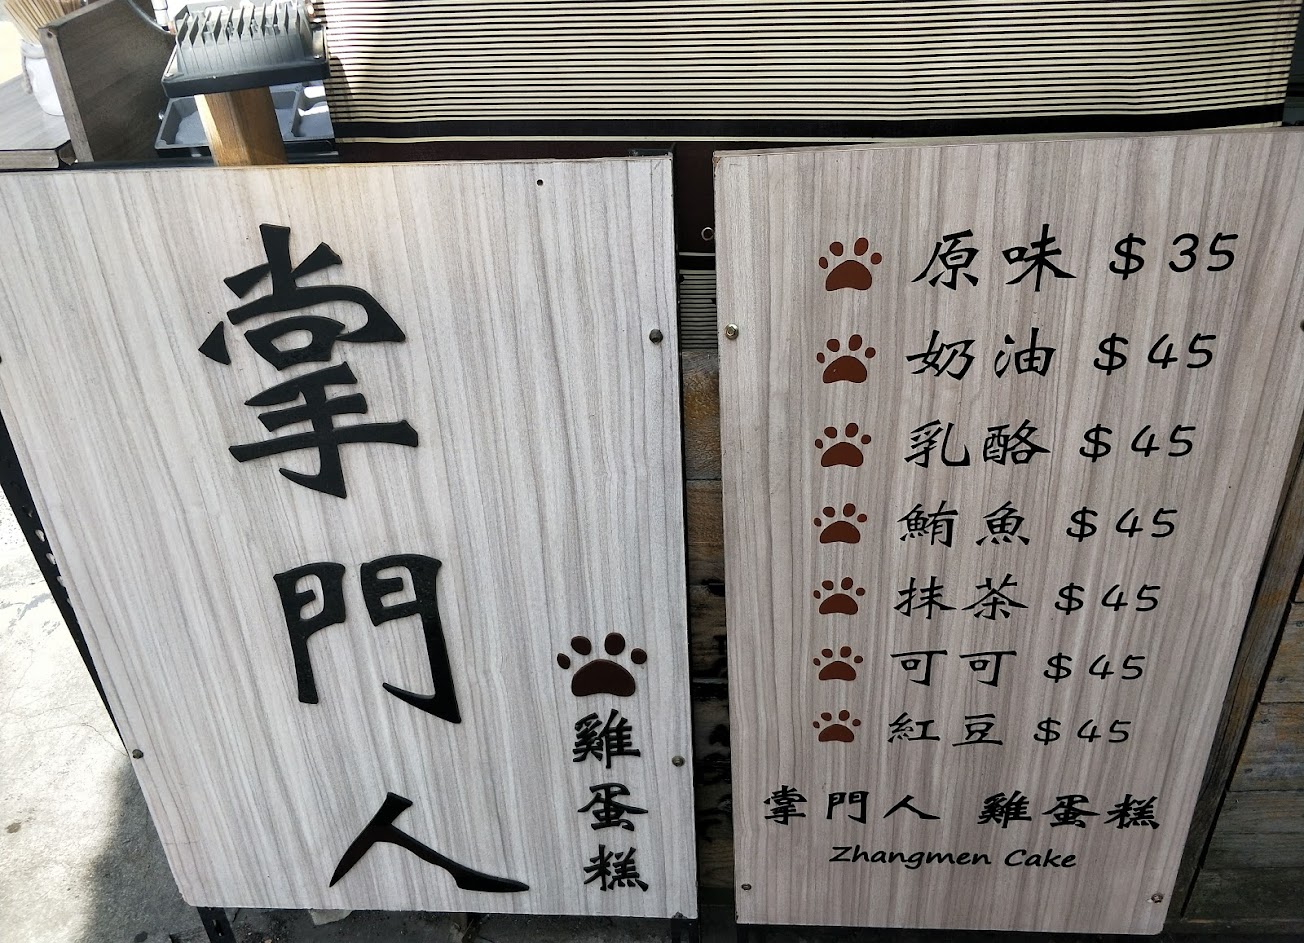 掌門人
雞蛋糕
原味 $35
奶油 $45
乳酪 $45
鮪魚 $45
抹茶 $45
可可 $45
紅豆 $45
掌門人 雞蛋糕
Zhangmen Cake